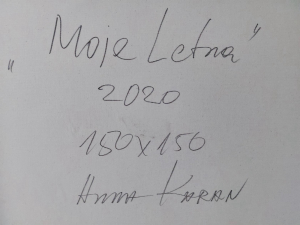 „Moje Letná"
2020
150x150
Anna KARAN